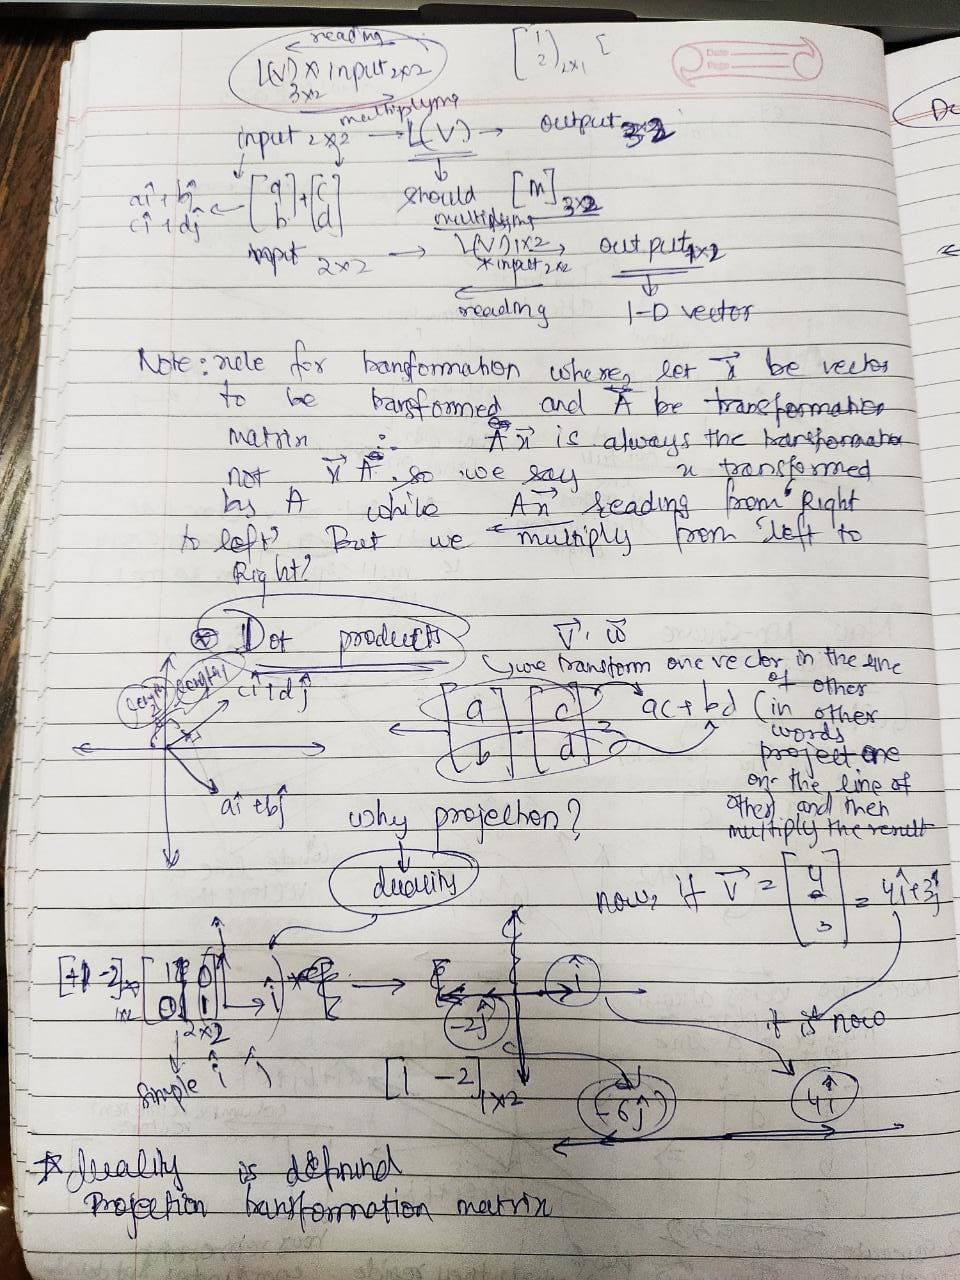 reading
L(v) * input 2x2
3x2
multiplying
[1 2] 2x1 [
Date
Page
input 2x2 → L(v) → output 3x2
aî + bĵ
cî + dĵ ← [a b] + [c d] should [M] 3x2
multiplying
input 2x2 → L(v) 1x2 output 1x2
* input 2x2
reading 1-D vector
Note: rule for transformation where, let x⃗ be vector
to be transformed and A⃗ be transformation
matrix ∴ A⃗ x⃗ is always the transformation
not x⃗ A⃗. so we say x transformed
by A while Ax⃗ reading from "Right
to left" But we multiply from "left to
Right"
Dot products v⃗ . w⃗
we transform one vector in the line
of other
length length cî + dĵ [a b] . [c d] = ac + bd (in other
words
project one
on the line of
other) and then
multiply the result
aî + bĵ
why projection?
duality
now, if v⃗ = [4 3] = 4î + 3ĵ
[1 -2] 1x2 * [1 0 0 1] 2x2 î → î
-2ĵ
it is now
simple î ĵ [1 -2] 1x2
-6ĵ 4î
* duality is defined
Projection transformation matrix